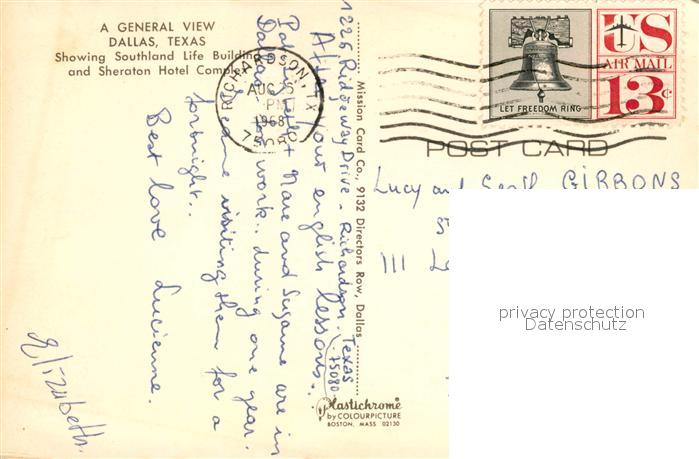 A GENERAL VIEW
DALLAS, TEXAS
Showing Southland Life Building
and Sheraton Hotel Complex
RICHARDSON, TX
AUG 25
PM
1968
LET FREEDOM RING
US
AIR MAIL
13¢
POST CARD
Mission Card Co., 9132 Directors Row, Dallas
Plastichrome
by COLOURPICTURE
BOSTON, MASS 02130
1226 Ridgeway Drive - Richardson. Texas
75080
After your english lessons..
Marc and Suzanne are in
Dallas for work.. during one year.
I came visiting them for a
fortnight..
Best love Lucienne.
Elizabeth.
Lucy and GIBBONS
111
privacy protection
Datenschutz